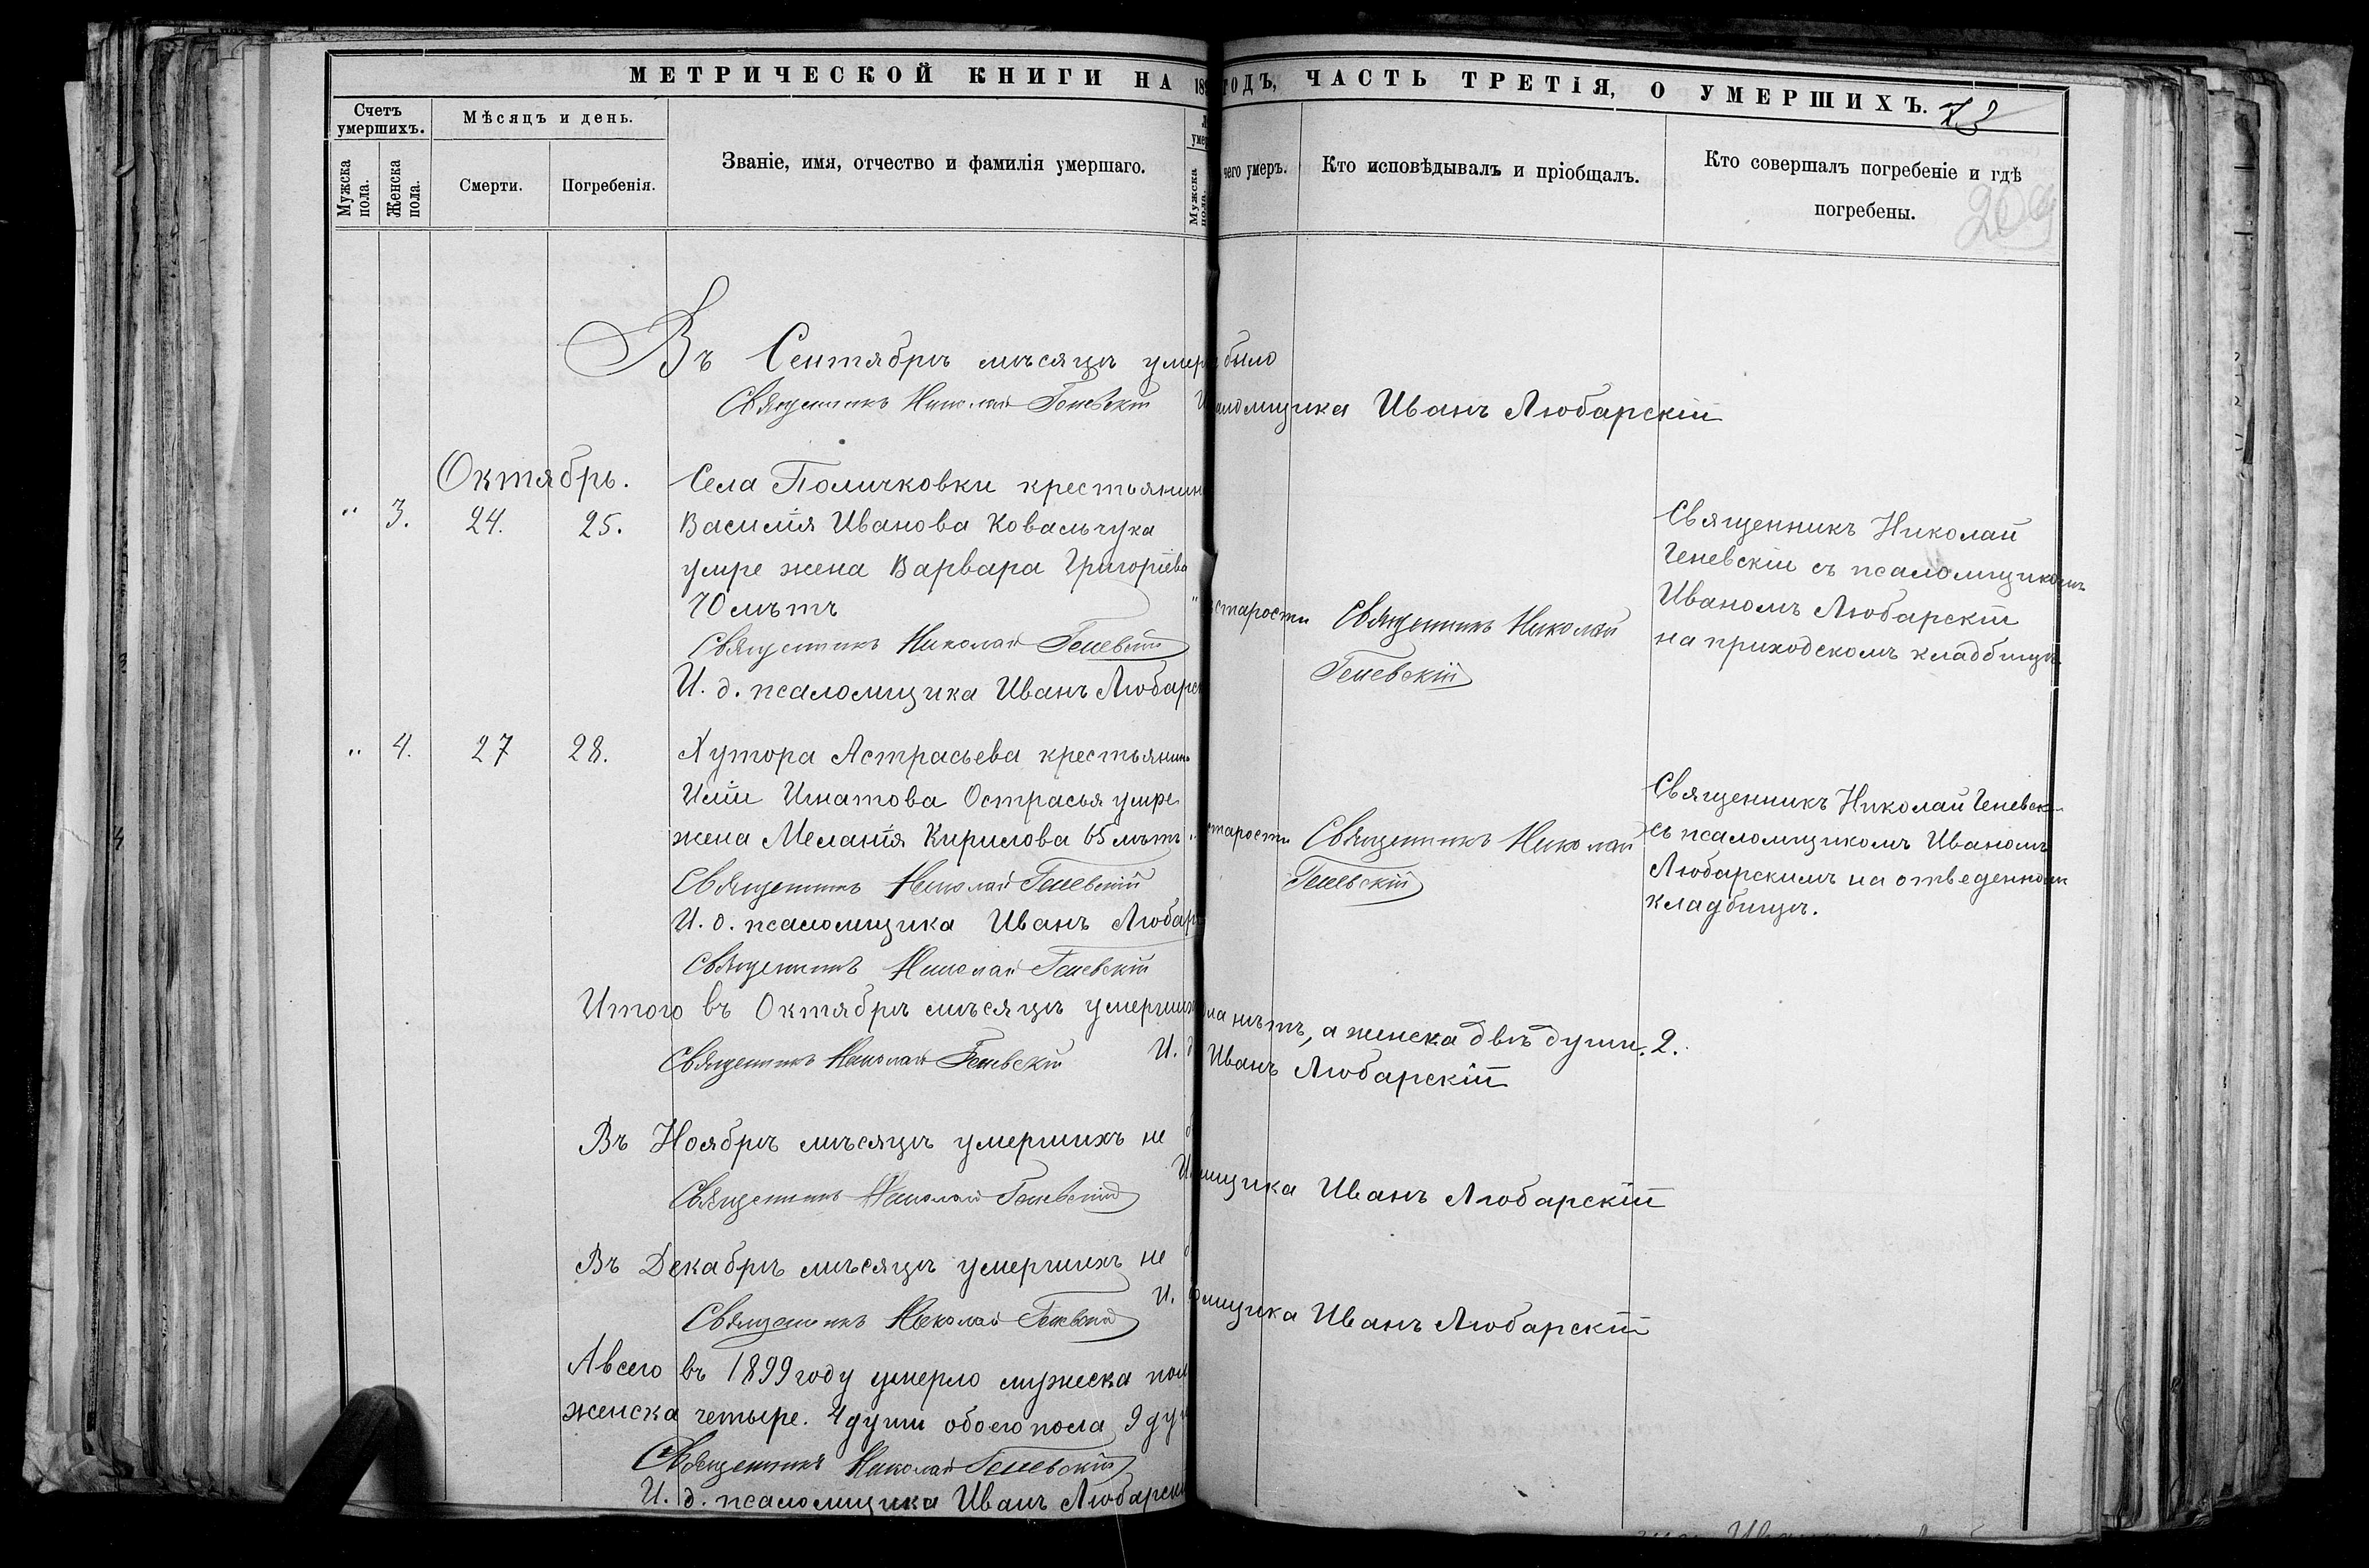 МЕТРИЧЕСКОЙ КНИГИ НА 189
Счетъ умершихъ.
Мѣсяцъ и день.
Мужска пола.
Женска пола.
Смерти.
Погребенія.
Званіе, имя, отчество и фамилія умершаго.
Мужска пола.
Въ Сентябрѣ мѣсяцѣ умер
Священникъ Николай Геневскій
Октябрь.
Села Поличковки крестьянин
" 3. 24. 25. Василія Иванова Ковальчука
умре жена Варвара Григоріева
70 лѣтъ "
Священникъ Николай Геневскій
И. д. псаломщика Иванъ Любарс
" 4. 27 28. Хутора Астрасьева крестьянина
Иліи Игнатова Острасья умре
жена Меланія Кирилова 65 лѣтъ "
Священникъ Николай Геневскій
И. д. псаломщика Иванъ Любар
Священникъ Николай Геневскій
Итого въ Октябрѣ мѣсяцѣ умерших
Священникъ Николай Геневскій И. д
Въ Ноябрѣ мѣсяцѣ умершихъ не
Священникъ Николай Геневскій И.
Въ Декабрѣ мѣсяцѣ умершихъ не
Священникъ Николай Геневскій И.
А всего въ 1899 году умерло мужеска пол
женска четыре. 4 души обоего пола 9 ду
Священникъ Николай Геневскій
И. д. псаломщика Иванъ Любарски
ГОДЪ, ЧАСТЬ ТРЕТІЯ, О УМЕРШИХЪ. 73
чего умеръ.
Кто исповѣдывалъ и пріобщалъ.
Кто совершалъ погребеніе и гдѣ
погребены.
было
аломщика Иванъ Любарскій
старости
Священникъ Николай
Геневскій
Священникъ Николай
Геневскій съ псаломщикомъ
Иваномъ Любарскій
на приходскомъ кладбищѣ
старости
Священникъ Николай
Геневскій
Священникъ Николай Геневск
съ псаломщикомъ Иваномъ
Любарскимъ на отведенном
кладбищѣ.
ла нѣтъ, а женска двѣ души. 2.
Иванъ Любарскій
мщика Иванъ Любарскій
омщика Иванъ Любарскій